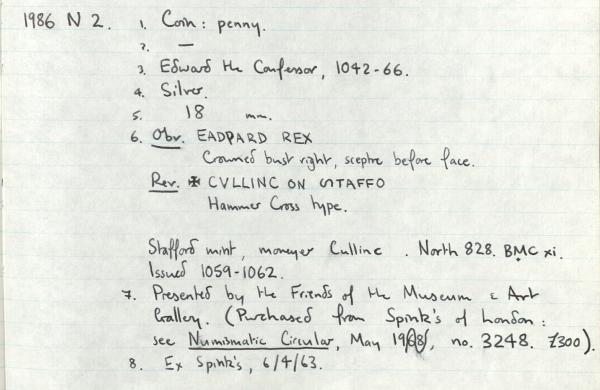 1986 N 2. 1. Coin: penny.
2. —
3. Edward the Confessor, 1042-66.
4. Silver.
5. 18 mm.
6. Obv. EADPARD REX
Crowned bust right, sceptre before face.
Rev. ✠ CVLLINC ON STAFFO
Hammer Cross type.
Stafford mint, moneyer Cullinc. North 828. BMC xi.
Issued 1059-1062.
7. Presented by the Friends of the Museum & Art
Gallery. (Purchased from Spink's of London:
see Numismatic Circular, May 19 no. 3248. £300).
8. Ex Spink's, 6/4/63.